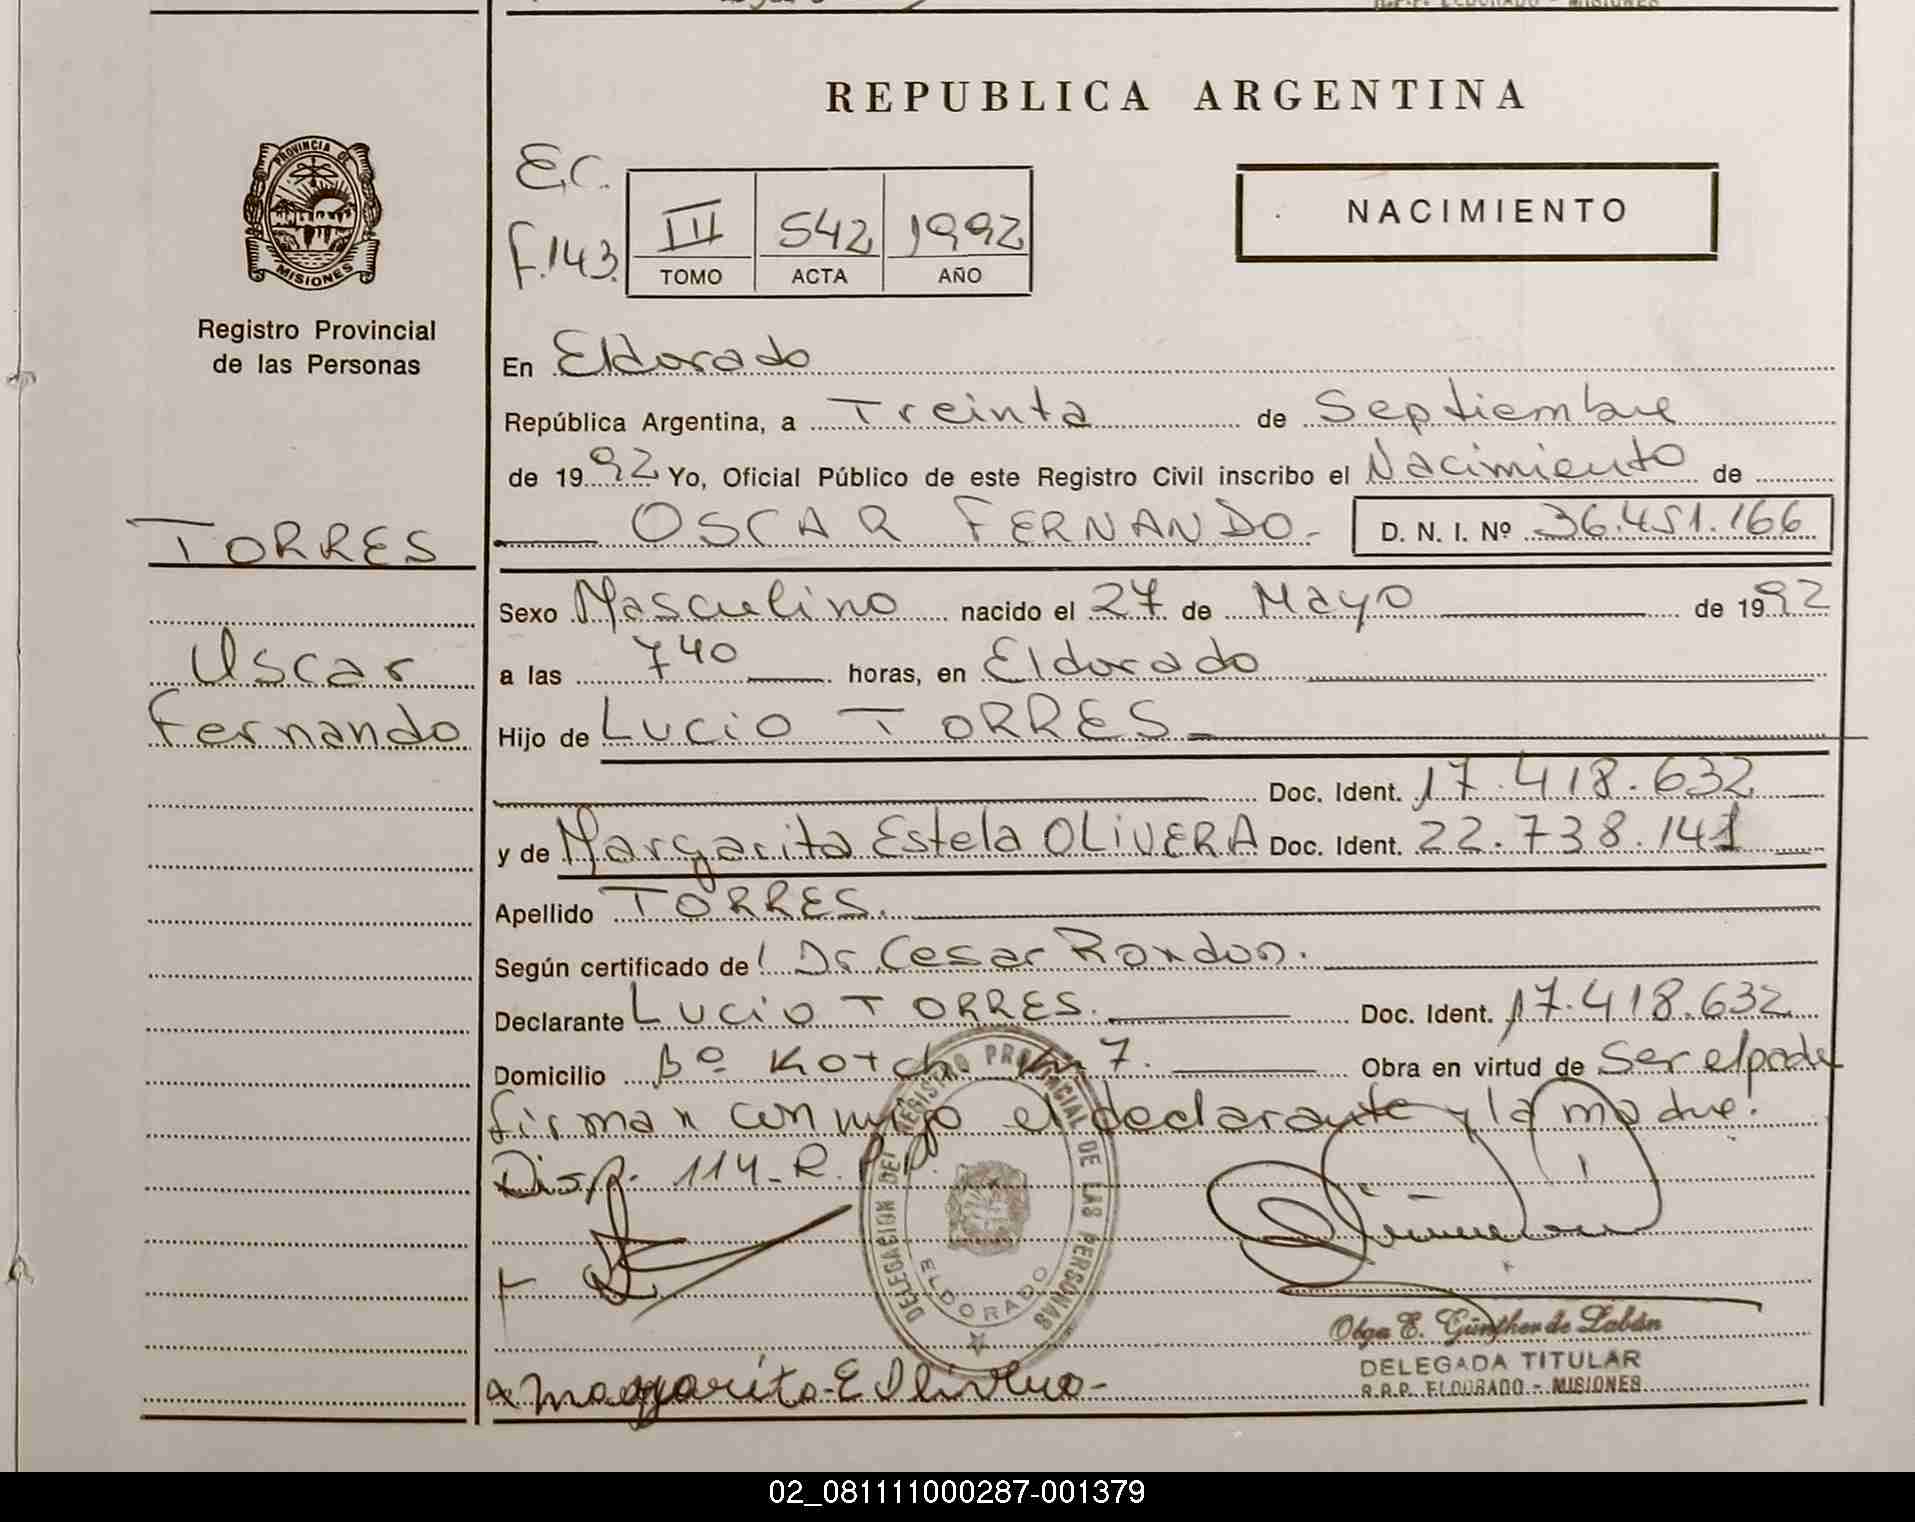 R.P.P. ELDORADO - MISIONES
REPUBLICA ARGENTINA
PROVINCIA DE
MISIONES
Registro Provincial
de las Personas
E.C.
F.143.
III 542 1992
TOMO ACTA AÑO
NACIMIENTO
En Eldorado
República Argentina, a Treinta de Septiembre
de 1992 Yo, Oficial Público de este Registro Civil inscribo el Nacimiento de
OSCAR FERNANDO.- D. N. I. Nº 36.451.166
TORRES
Oscar
Fernando
Sexo Masculino nacido el 27 de Mayo de 1992
a las 7 40 horas, en Eldorado
Hijo de Lucio TORRES.-
Doc. Ident. 17.418.632
y de Margarita Estela OLIVERA Doc. Ident. 22.738.141
Apellido TORRES.
Según certificado de Dr. Cesar Rondon.
Declarante Lucio TORRES. Doc. Ident. 17.418.632
Domicilio Bº Kotch. Km 7. Obra en virtud de Ser el padre
firman conmigo el declarante y la madre.
Disp. 114-R.P.P.
DELEGACION DEL REGISTRO PROVINCIAL DE LAS PERSONAS
ELDORADO
Olga E. Günther de Labán
DELEGADA TITULAR
R.R.P. ELDORADO - MISIONES
Margarita E Olivera-
02_081111000287-001379